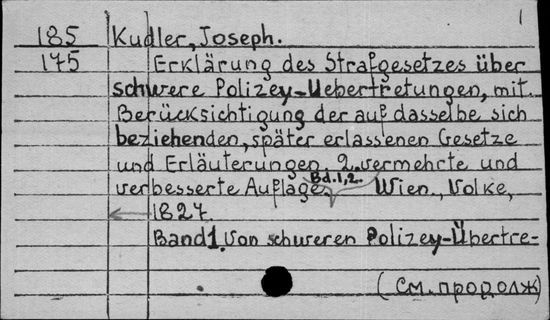 1
185 Kudler, Joseph.
175 Erklärung des Strafgesetzes über
schwere Polizey-Uebertretungen, mit
Berücksichtigung der auf dasselbe sich
beziehenden, später erlassenen Gesetze
und Erläuterungen. 2. vermehrte und
Bd.1,2.
verbesserte Auflage. Wien., Volke,
1827.
Band 1. Von schweren Polizey-Übertre-
(См. продолж)